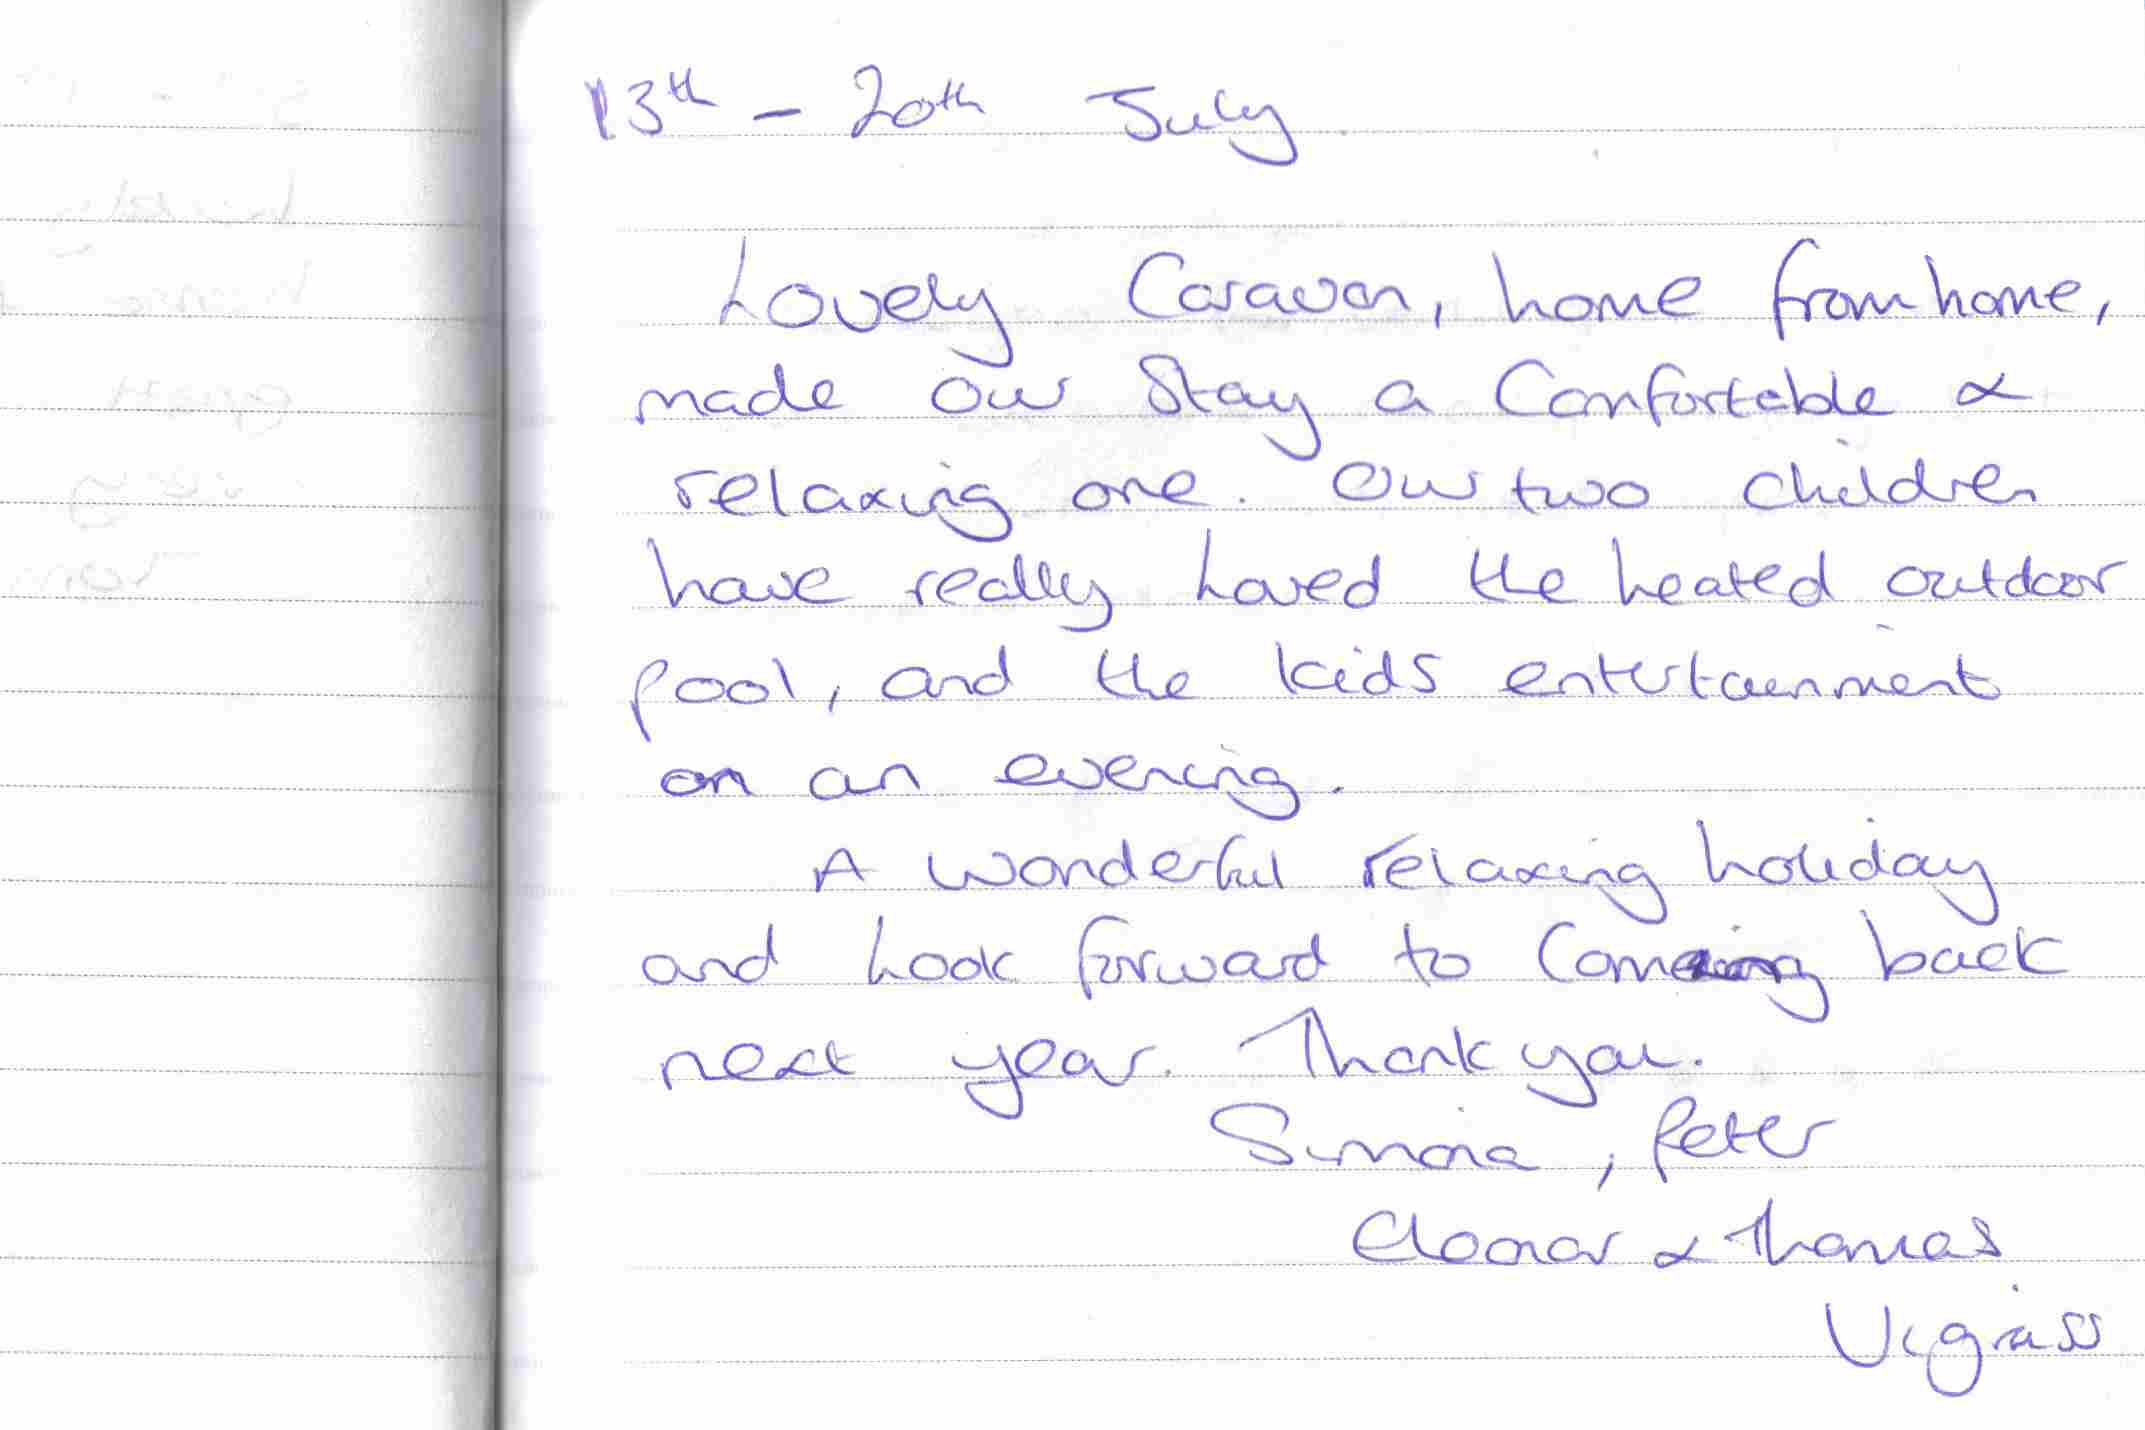 13th - 20th July
Lovely Caravan, home from home,
made our Stay a Comfortable &
relaxing one. Our two children
have really Loved the heated outdoor
pool, and the kids entertainment
on an evening.
A wonderful relaxing holiday
and Look forward to Coming back
next year. Thank you.
Simona, Peter
Eleonor & Thomas